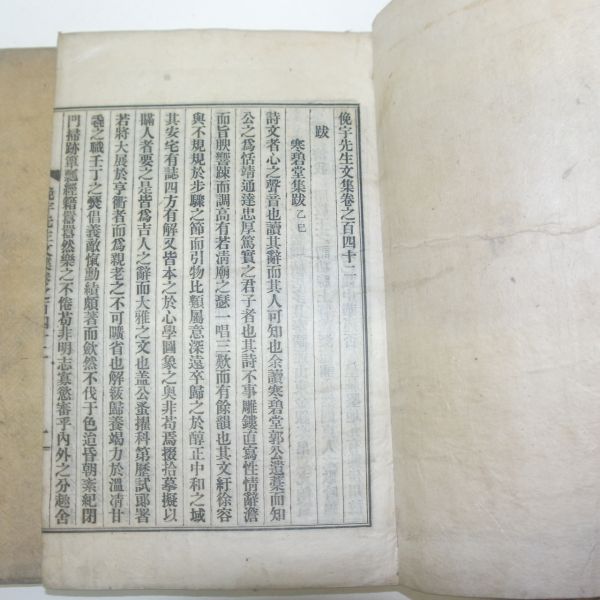 俛宇先生文集卷之百四十二
跋
寒碧堂集跋 乙巳
詩文者心之聲音也讀其辭而其人可知也余讀寒碧堂郭公遺藁而知
公之爲恬靖通達忠厚篤實之君子者也其詩不事雕鏤直寫性情辭澹
而旨腴響踈而調高有若清廟之瑟一唱三歎而有餘韻也其文紆徐容
與不規規於步驟之節而引物比類屬意深遠卒歸之於醇正中和之域
其安宅有誌四方有解又皆本之於心學圖象之奧非苟焉掇拾摹擬以
瞞人者要之是皆爲吉人之辭而大雅之文也盖公蚤擢科第歷試郞署
若將大展於亨衢者而爲親老之不可曠省也解紱歸養竭力於溫凊甘
毳之職壬丁之燹倡義敵愾勳績頗著而歛然不伐于色迨昏朝紊紀閉
門掃跡簞瓢經籍囂囂然樂之不倦苟非明志寡慾審乎內外之分趣舍
俛宇先生文集卷之百四十二